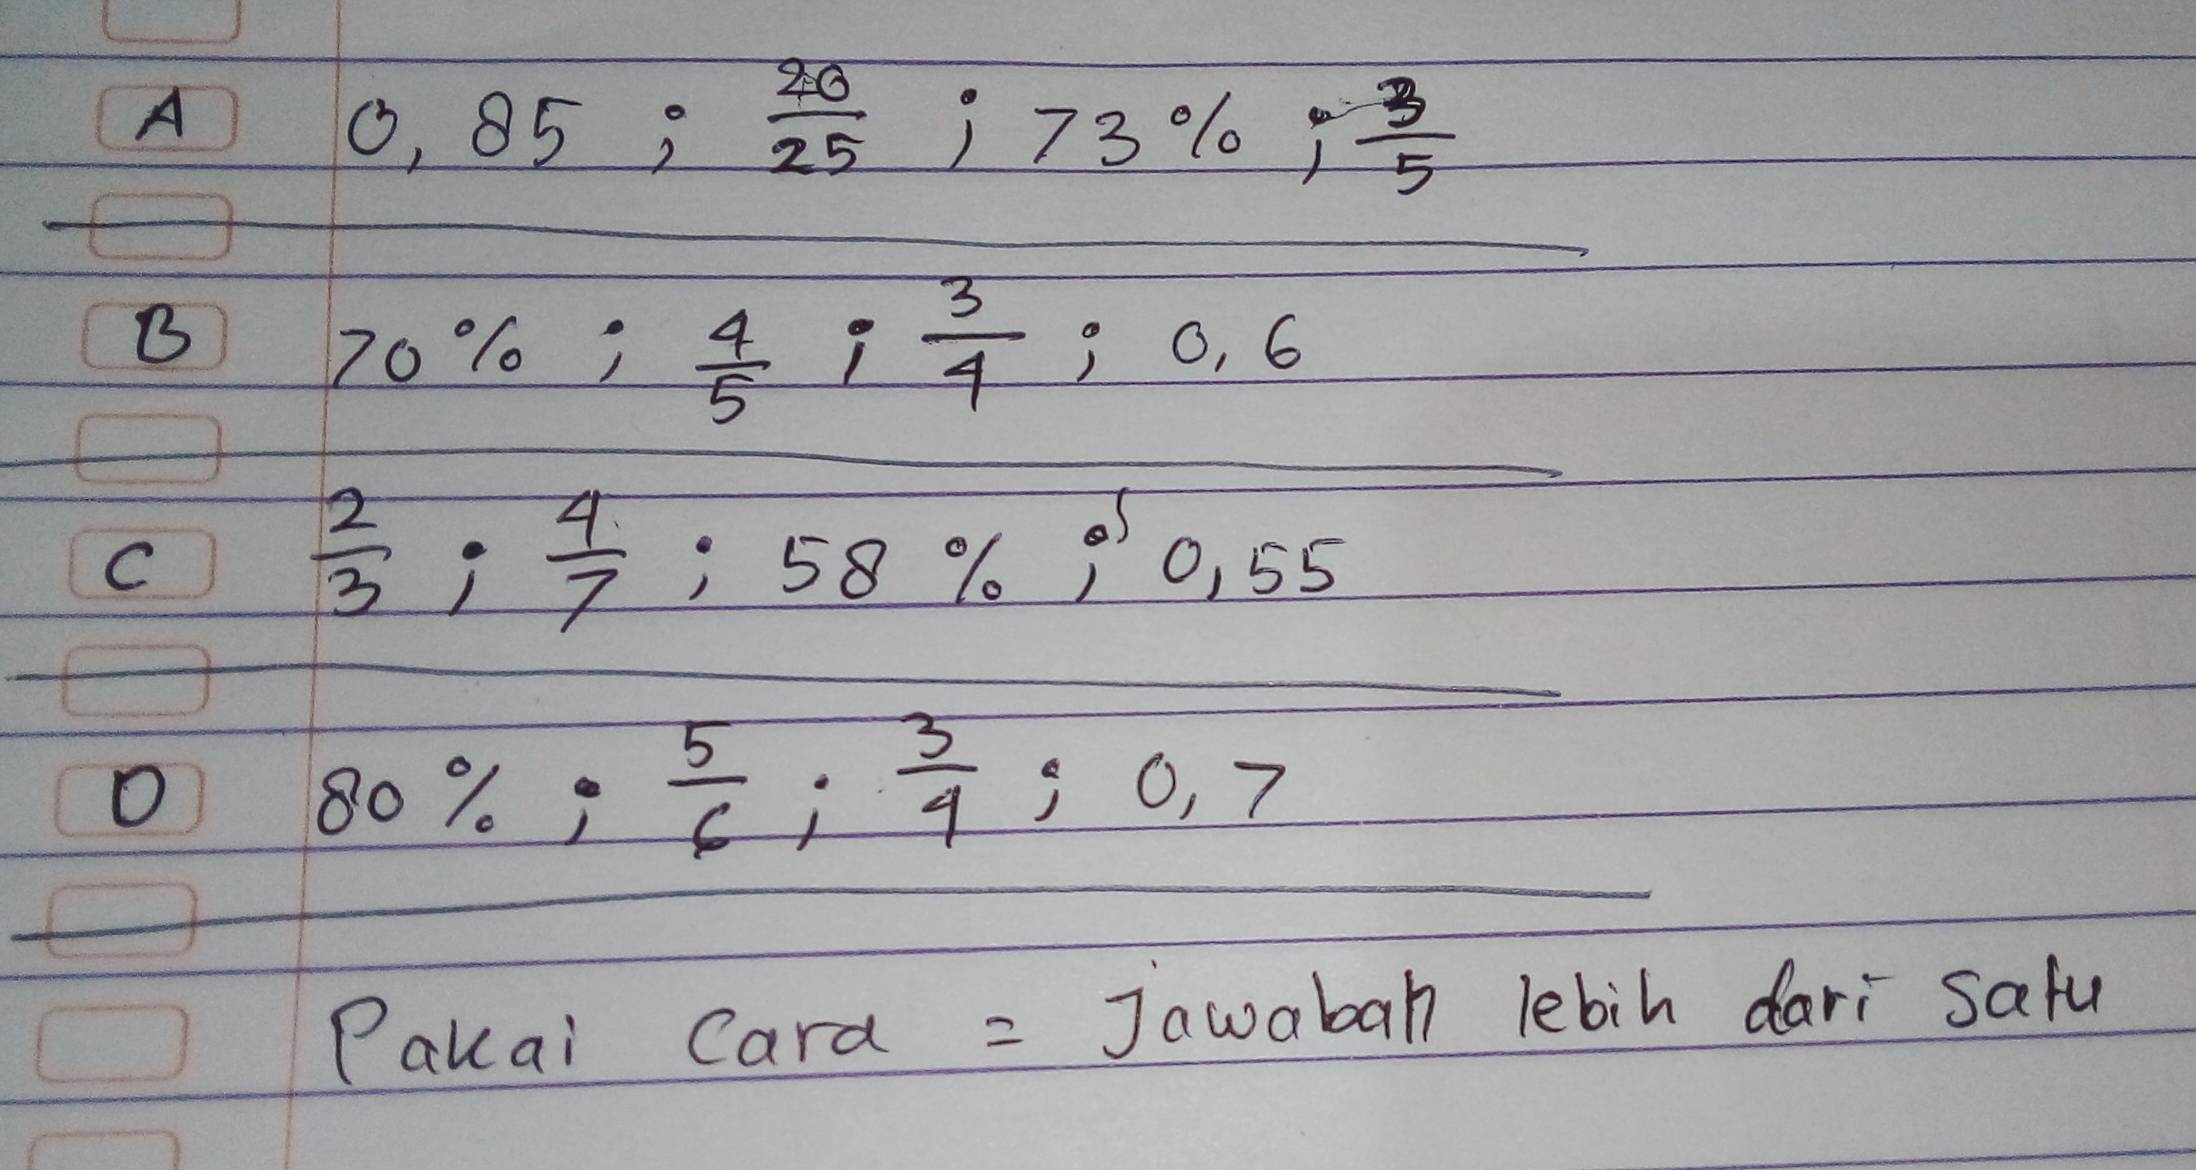 A 0,85 ; 20/25 ; 73% ; 3/5
B 70% ; 4/5 ; 3/4 ; 0,6
C 2/3 ; 4/7 ; 58% ; 0,55
D 80% ; 5/6 ; 3/4 ; 0,7
Pakai Cara = Jawaban lebih dari Satu